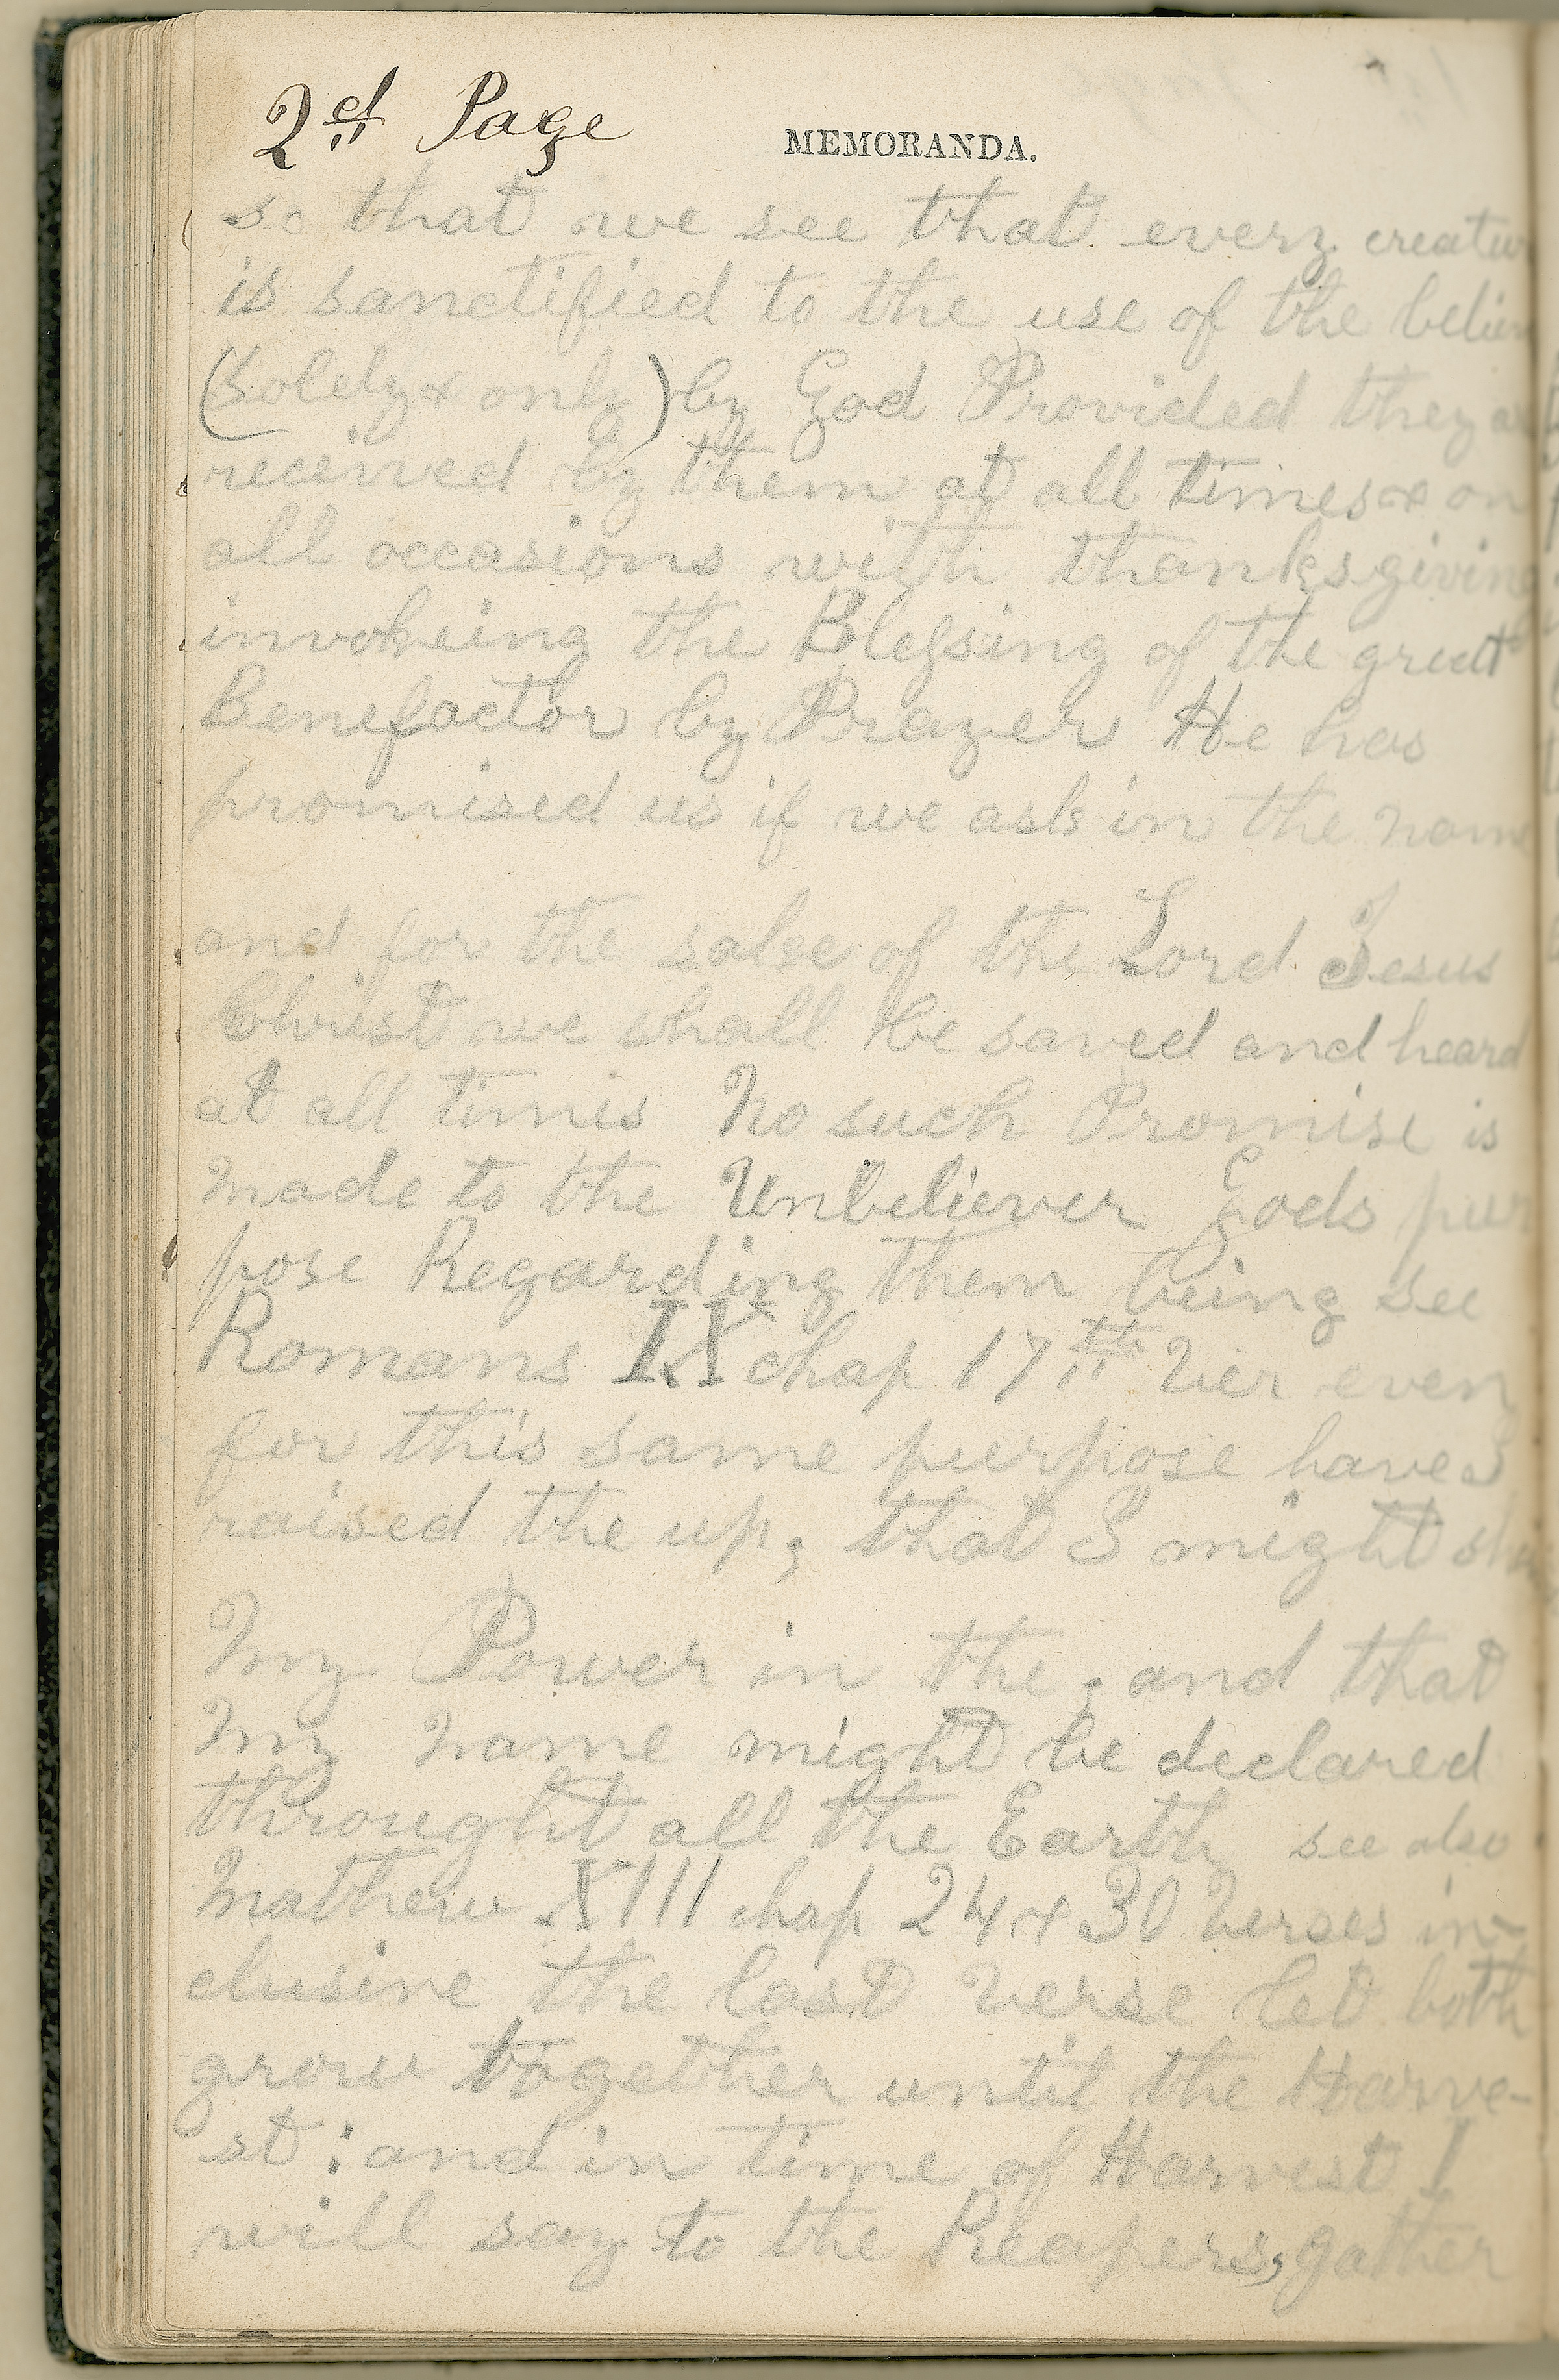 2ed Page
MEMORANDA.
so that we see that every creatur
is sanctified to the use of the believ
(Solely & only) by God Provided they ar
received by them at all times & on
all occasions with thanksgiving
invokeing the Blessing of the great
Benefactor by Prayer He has
promised us if we ask in the name
and for the sake of the Lord Jesus
Christ we shall be saved and heard
at all times No such Promise is
made to the Unbeliever Gods pur
pose Regarding them being see
Romans IX chap 17th Ver even
for this same purpose have I
raised the up, that I might sho
My Power in the, and that
My name might be declared
throught all the Earth see also
Mathew XIII chap 24 & 30 Verses in-
clusive the last Verse let both
grow together until the Harve-
st: and in time of Harvest I
will say to the Reapers, gather